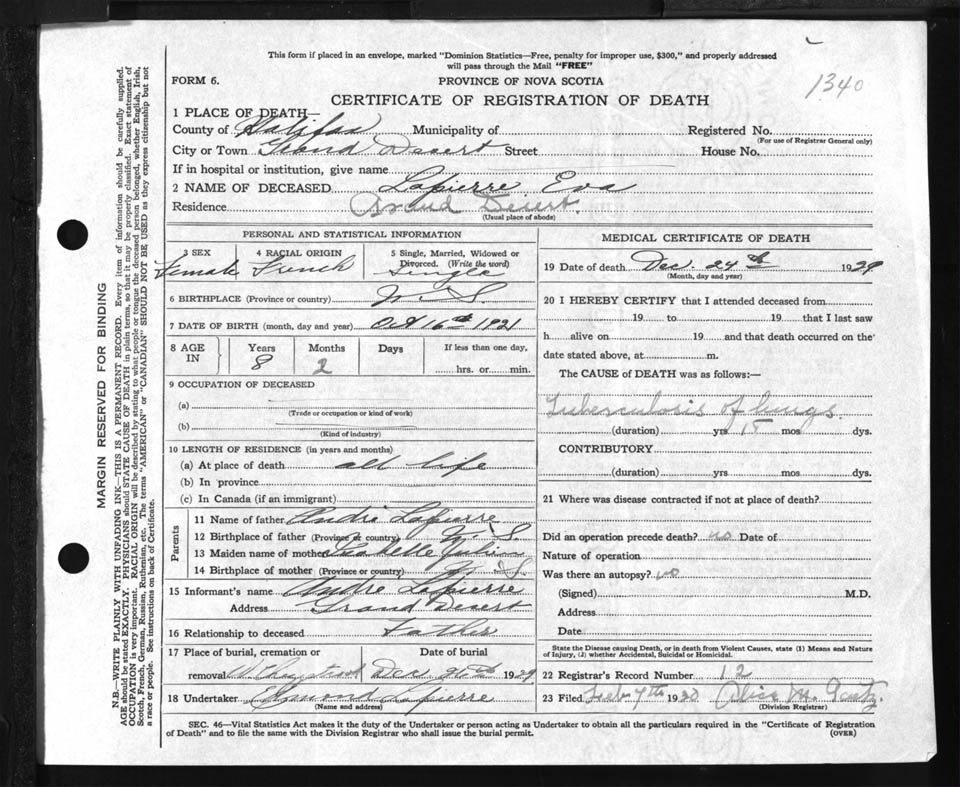 This form if placed in an envelope, marked "Dominion Statistics—Free, penalty for improper use, $300," and properly addressed
will pass through the Mail "FREE"
1340
FORM 6.
PROVINCE OF NOVA SCOTIA
CERTIFICATE OF REGISTRATION OF DEATH
1 PLACE OF DEATH—
County of Halifax Municipality of Registered No.
(For use of Registrar General only)
City or Town Grand Desert Street House No.
If in hospital or institution, give name
2 NAME OF DECEASED Lapierre Eva
Residence Grand Desert
(Usual place of abode)
PERSONAL AND STATISTICAL INFORMATION
3 SEX
Female
4 RACIAL ORIGIN
French
5 Single, Married, Widowed or
Divorced. (Write the word)
Single
6 BIRTHPLACE (Province or country) N. S.
7 DATE OF BIRTH (month, day and year) Oct 16th 1921
8 AGE IN
Years
8
Months
2
Days
If less than one day,
hrs. or min.
9 OCCUPATION OF DECEASED
(a)
(Trade or occupation or kind of work)
(b)
(Kind of industry)
10 LENGTH OF RESIDENCE (in years and months)
(a) At place of death all life
(b) In province
(c) In Canada (if an immigrant)
Parents
11 Name of father André Lapierre
12 Birthplace of father (Province or country) N. S.
13 Maiden name of mother Isabelle
14 Birthplace of mother (Province or country) N. S.
15 Informant's name Andre Lapierre
Address Grand Desert
16 Relationship to deceased Father
17 Place of burial, cremation or Date of burial
removal Dec 1929
18 Undertaker Edmond Lapierre
(Name and address)
MEDICAL CERTIFICATE OF DEATH
19 Date of death Dec. 24th 1929
(Month, day and year)
20 I HEREBY CERTIFY that I attended deceased from
19 to 19 that I last saw
h alive on 19 and that death occurred on the
date stated above, at m.
The CAUSE of DEATH was as follows:—
Tuberculosis of lungs
(duration) yrs 15 mos dys.
CONTRIBUTORY
(duration) yrs. mos. dys.
21 Where was disease contracted if not at place of death?
Did an operation precede death? no Date of
Nature of operation
Was there an autopsy? no
(Signed) M.D.
Address
Date
State the Disease causing Death, or in death from Violent Causes, state (1) Means and Nature
of Injury, (2) whether Accidental, Suicidal or Homicidal.
22 Registrar's Record Number 12
23 Filed Feb 7th 1930 Alice M.
(Division Registrar)
SEC. 46—Vital Statistics Act makes it the duty of the Undertaker or person acting as Undertaker to obtain all the particulars required in the "Certificate of Registration
of Death" and to file the same with the Division Registrar who shall issue the burial permit.
(OVER)
MARGIN RESERVED FOR BINDING
N.B.—WRITE PLAINLY WITH UNFADING INK—THIS IS A PERMANENT RECORD. Every item of information should be carefully supplied.
AGE should be stated EXACTLY. PHYSICIANS should STATE CAUSE OF DEATH in plain terms, so that it may be properly classified. Exact statement of
OCCUPATION is very important. RACIAL ORIGIN will be described by stating to what people or tongue the deceased person belonged, whether English, Irish,
Scotch, French, German, Russian, Ruthenian, etc. The terms "AMERICAN" or "CANADIAN" SHOULD NOT BE USED as they express citizenship but not
a race or people. See instructions on back of Certificate.